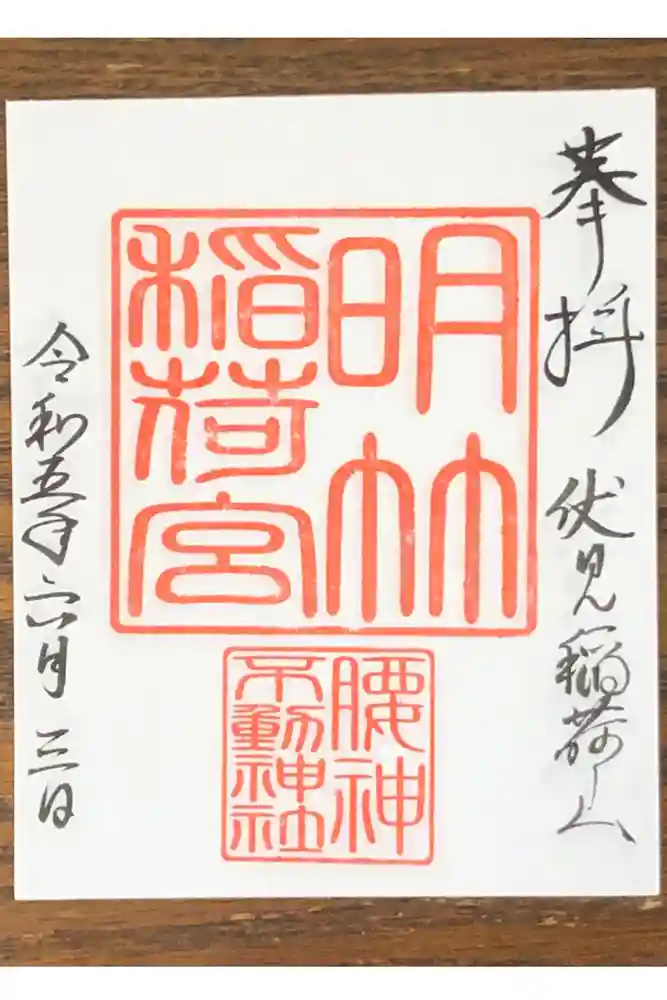 奉拝 伏見稲荷山
明林
稲荷宮
腰神
不動神社
令和五年六月三日